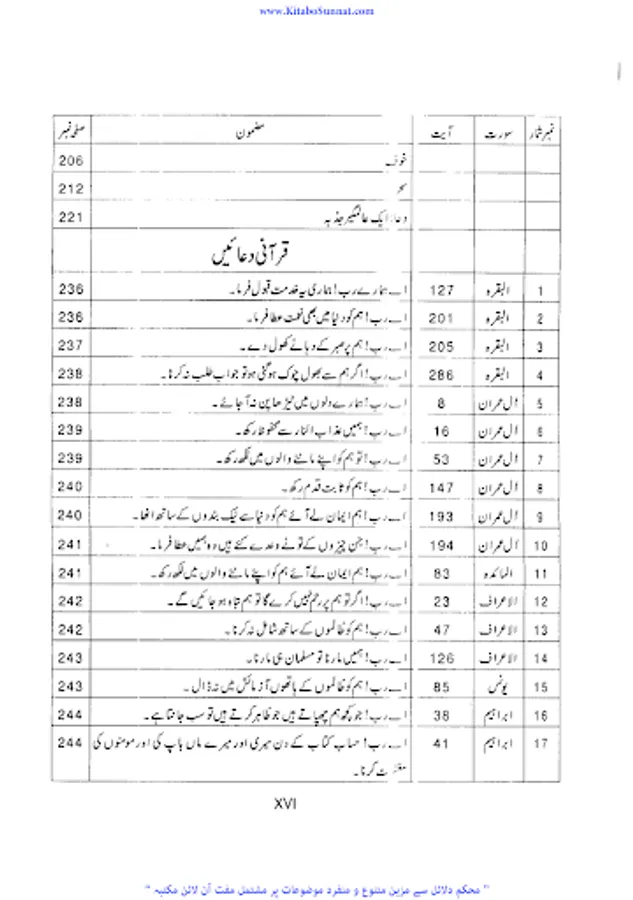 www.KitaboSunnat.com
نمبر شمار سورت آیت مضمون صفحہ نمبر
خوف 206
سحر 212
دعا: ایک عالمگیر جذبہ 221
قرآنی دعائیں
1 البقرہ 127 اے ہمارے رب! ہماری یہ خدمت قبول فرما۔ 236
2 البقرہ 201 اے رب! ہم کو دنیا میں بھی نعمت عطا فرما۔ 236
3 البقرہ 205 اے رب! ہم پر صبر کے دہانے کھول دے۔ 237
4 البقرہ 286 اے رب! اگر ہم سے بھول چوک ہو گئی ہو تو جواب طلب نہ کرنا۔ 238
5 اٰل عمران 8 اے رب! ہمارے دلوں میں ٹیڑھا پن نہ آ جائے۔ 238
6 اٰل عمران 16 اے رب! ہمیں عذاب النار سے محفوظ رکھ۔ 239
7 اٰل عمران 53 اے رب! تو ہم کو اپنے ماننے والوں میں لکھ رکھ۔ 239
8 اٰل عمران 147 اے رب! ہم کو ثابت قدم رکھ۔ 240
9 اٰل عمران 193 اے رب! ہم ایمان لے آئے ہم کو دنیا سے نیک بندوں کے ساتھ اٹھا۔ 240
10 اٰل عمران 194 اے رب! جن چیزوں کے تو نے وعدے کئے ہیں وہ ہمیں عطا فرما۔ 241
11 المائدہ 83 اے رب! ہم ایمان لے آئے ہم کو اپنے ماننے والوں میں لکھ رکھ۔ 241
12 الاعراف 23 اے رب! اگر تو ہم پر رحم نہیں کرے گا تو ہم تباہ ہو جائیں گے۔ 242
13 الاعراف 47 اے رب! ہم کو ظالموں کے ساتھ شامل نہ کرنا۔ 242
14 الاعراف 126 اے رب! ہمیں مارنا تو مسلمان ہی مارنا۔ 243
15 یونس 85 اے رب! ہم کو ظالموں کے ہاتھوں آزمائش میں نہ ڈال۔ 243
16 ابراہیم 38 اے رب! جو کچھ ہم چھپاتے ہیں جو ظاہر کرتے ہیں تو سب جانتا ہے۔ 244
17 ابراہیم 41 اے رب! حساب کتاب کے دن میری اور میرے ماں باپ کی اور مومنوں کی 244
مغفرت کرنا۔
XVI
" محکم دلائل سے مزین متنوع و منفرد موضوعات پر مشتمل مفت آن لائن مکتبہ "